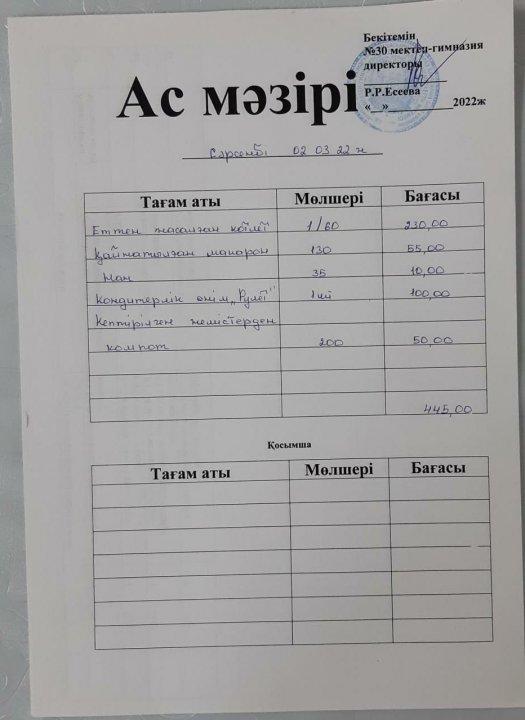 Бекітемін
№30 мектеп-гимназия
директоры
Р.Р.Есеева
«__»__________2022ж
Ас мәзірі
Сәрсенбі 02 03 22 ж
Тағам аты Мөлшері Бағасы
Еттен жасалған котлеті 1/60 230,00
Қайнатылған макарон 130 55,00
Нан 35 10,00
Кондитерлік өнім „Рулет" 100,00
Кептірілген жемістерден
компот 200 50,00
445,00
Қосымша
Тағам аты Мөлшері Бағасы